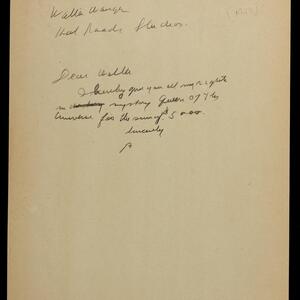 Walter Wanger
Hal Roach Studios.
Dear Walter
I hereby give you all my rights
in my story Queen of the
Universe for the sum of $5000.
Sincerely